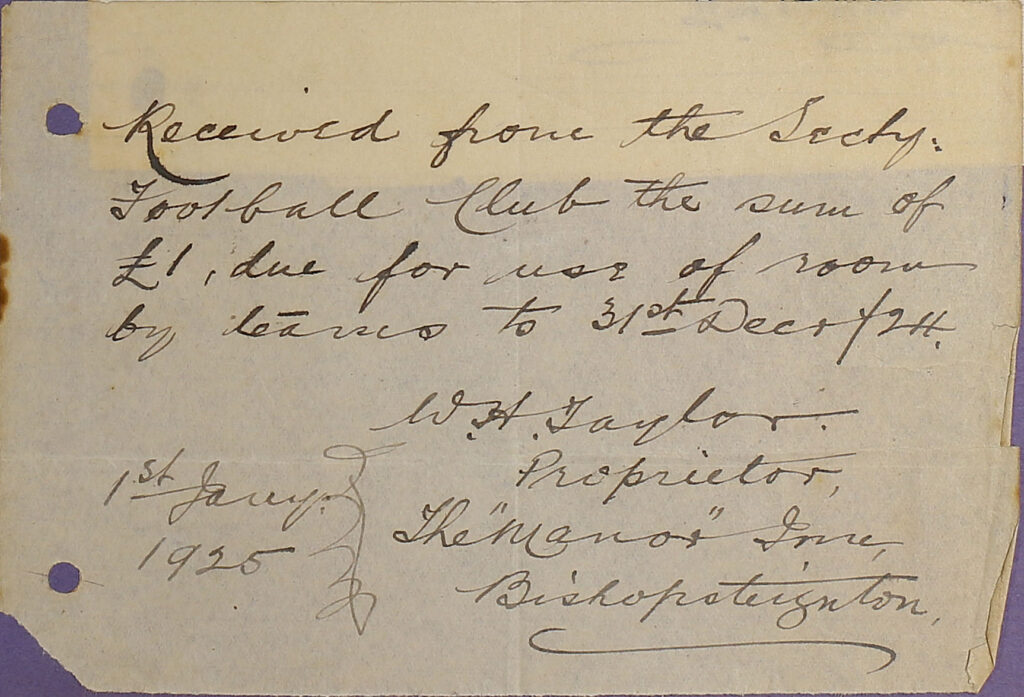 Received from the Secty.
Football Club the sum of
£1, due for use of room
by teams to 31st Decr/24.
W.H. Taylor.
Proprietor,
The "Manor" Inn,
Bishopsteignton,
1st Jany.
1925